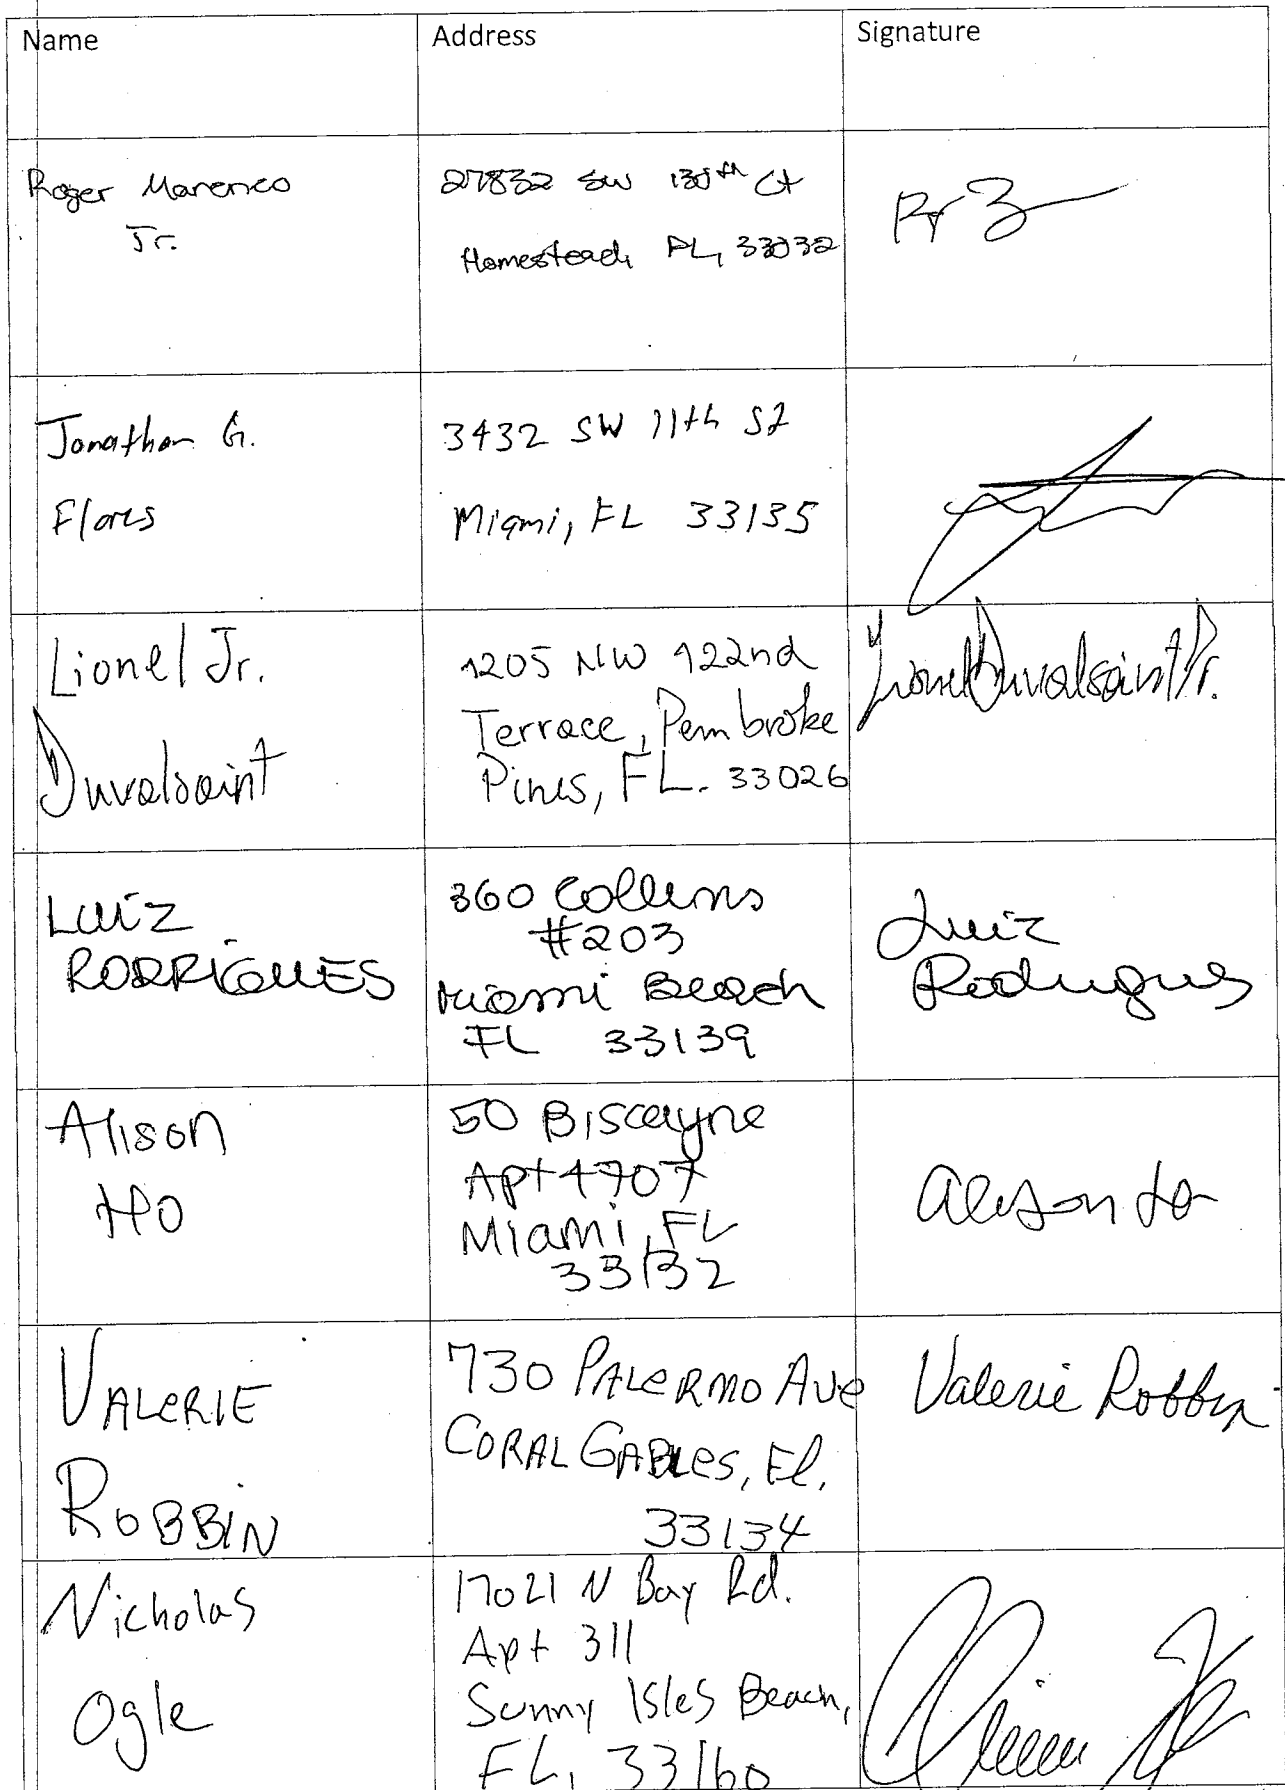 Name Address Signature
Roger Marenco
Jr.
27832 SW 130th Ct
Homestead, FL, 33032
Jonathan G.
Flores
3432 SW 11th St
Miami, FL 33135
Lionel Jr.
Duvalsaint
1205 NW 122nd
Terrace, Pembroke
Pines, FL. 33026
Lionel Duvalsaint Jr.
Luiz
RODRIGUES
360 Collins
#203
Miami Beach
FL 33139
Luiz
Rodrigues
Alison
Ho
50 Biscayne
Apt 4707
Miami, FL
33132
Alison Ho
VALERIE
ROBBIN
730 PALERMO AVE
CORAL GABLES, Fl.
33134
Valerie Robbin
Nicholas
Ogle
17021 N Bay Rd.
Apt 311
Sunny Isles Beach,
FL, 33160